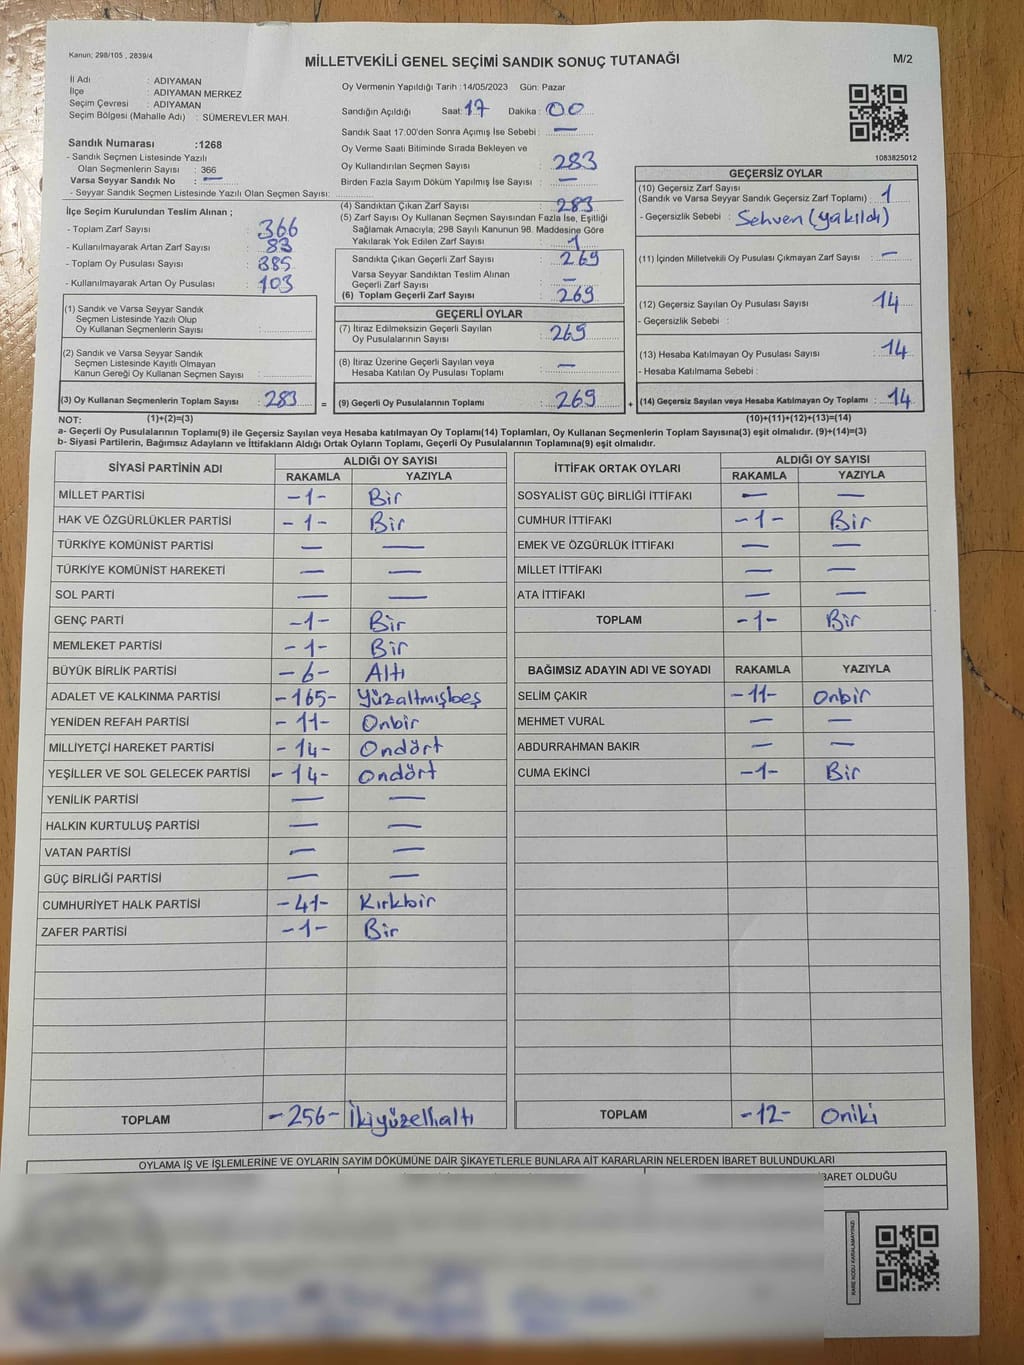 Kanun; 298/105 , 2839/4
MİLLETVEKİLİ GENEL SEÇİMİ SANDIK SONUÇ TUTANAĞI
M/2
İl Adı : ADIYAMAN
İlçe : ADIYAMAN MERKEZ
Seçim Çevresi : ADIYAMAN
Seçim Bölgesi (Mahalle Adı) : SÜMEREVLER MAH.
Sandık Numarası :1268
- Sandık Seçmen Listesinde Yazılı
Olan Seçmenlerin Sayısı : 366
Varsa Seyyar Sandık No : —
- Seyyar Sandık Seçmen Listesinde Yazılı Olan Seçmen Sayısı:
Oy Vermenin Yapıldığı Tarih :14/05/2023 Gün: Pazar
Sandığın Açıldığı Saat: 17 Dakika : 00
Sandık Saat 17.00'den Sonra Açımış İse Sebebi : —
Oy Verme Saati Bitiminde Sırada Bekleyen ve
Oy Kullandırılan Seçmen Sayısı : 283
Birden Fazla Sayım Döküm Yapılmış İse Sayısı : —
1083825012
İlçe Seçim Kurulundan Teslim Alınan ;
- Toplam Zarf Sayısı : 366
- Kullanılmayarak Artan Zarf Sayısı : 83
- Toplam Oy Pusulası Sayısı : 385
- Kullanılmayarak Artan Oy Pusulası : 103
(1) Sandık ve Varsa Seyyar Sandık
Seçmen Listesinde Yazılı Olup
Oy Kullanan Seçmenlerin Sayısı :
(2) Sandık ve Varsa Seyyar Sandık
Seçmen Listesinde Kayıtlı Olmayan
Kanun Gereği Oy Kullanan Seçmen Sayısı :
(3) Oy Kullanan Seçmenlerin Toplam Sayısı : 283 =
(4) Sandıktan Çıkan Zarf Sayısı : 283
(5) Zarf Sayısı Oy Kullanan Seçmen Sayısından Fazla İse, Eşitliği
Sağlamak Amacıyla; 298 Sayılı Kanunun 98. Maddesine Göre
Yakılarak Yok Edilen Zarf Sayısı : 1
Sandıkta Çıkan Geçerli Zarf Sayısı : 269
Varsa Seyyar Sandıktan Teslim Alınan
Geçerli Zarf Sayısı : —
(6) Toplam Geçerli Zarf Sayısı : 269
GEÇERLİ OYLAR
(7) İtiraz Edilmeksizin Geçerli Sayılan
Oy Pusulalarının Sayısı : 269
(8) İtiraz Üzerine Geçerli Sayılan veya
Hesaba Katılan Oy Pusulası Toplamı : —
(9) Geçerli Oy Pusulalarının Toplamı : 269 +
GEÇERSİZ OYLAR
(10) Geçersiz Zarf Sayısı
(Sandık ve Varsa Seyyar Sandık Geçersiz Zarf Toplamı) : 1
- Geçersizlik Sebebi : Sehven (yakıldı)
(11) İçinden Milletvekili Oy Pusulası Çıkmayan Zarf Sayısı : —
(12) Geçersiz Sayılan Oy Pusulası Sayısı : 14
- Geçersizlik Sebebi :
(13) Hesaba Katılmayan Oy Pusulası Sayısı : 14
- Hesaba Katılmama Sebebi :
(14) Geçersiz Sayılan veya Hesaba Katılmayan Oy Toplamı : 14
NOT: (1)+(2)=(3) (10)+(11)+(12)+(13)=(14)
a- Geçerli Oy Pusulalarının Toplamı(9) ile Geçersiz Sayılan veya Hesaba Katılmayan Oy Toplamı(14) Toplamları, Oy Kullanan Seçmenlerin Toplam Sayısına(3) eşit olmalıdır. (9)+(14)=(3)
b- Siyasi Partilerin, Bağımsız Adayların ve İttifakların Aldığı Ortak Oyların Toplamı, Geçerli Oy Pusulalarının Toplamına(9) eşit olmalıdır.
SİYASİ PARTİNİN ADI ALDIĞI OY SAYISI
RAKAMLA YAZIYLA
MİLLET PARTİSİ -1- Bir
HAK VE ÖZGÜRLÜKLER PARTİSİ -1- Bir
TÜRKİYE KOMÜNİST PARTİSİ — —
TÜRKİYE KOMÜNİST HAREKETİ — —
SOL PARTİ — —
GENÇ PARTİ -1- Bir
MEMLEKET PARTİSİ -1- Bir
BÜYÜK BİRLİK PARTİSİ -6- Altı
ADALET VE KALKINMA PARTİSİ -165- Yüzaltmışbeş
YENİDEN REFAH PARTİSİ -11- Onbir
MİLLİYETÇİ HAREKET PARTİSİ -14- Ondört
YEŞİLLER VE SOL GELECEK PARTİSİ -14- Ondört
YENİLİK PARTİSİ — —
HALKIN KURTULUŞ PARTİSİ — —
VATAN PARTİSİ — —
GÜÇ BİRLİĞİ PARTİSİ — —
CUMHURİYET HALK PARTİSİ -41- Kırkbir
ZAFER PARTİSİ -1- Bir
TOPLAM -256- İkiyüzellialtı
İTTİFAK ORTAK OYLARI ALDIĞI OY SAYISI
RAKAMLA YAZIYLA
SOSYALİST GÜÇ BİRLİĞİ İTTİFAKI — —
CUMHUR İTTİFAKI -1- Bir
EMEK VE ÖZGÜRLÜK İTTİFAKI — —
MİLLET İTTİFAKI — —
ATA İTTİFAKI — —
TOPLAM -1- Bir
BAĞIMSIZ ADAYIN ADI VE SOYADI RAKAMLA YAZIYLA
SELİM ÇAKIR -11- Onbir
MEHMET VURAL — —
ABDURRAHMAN BAKIR — —
CUMA EKİNCİ -1- Bir
TOPLAM -12- Oniki
OYLAMA İŞ VE İŞLEMLERİNE VE OYLARIN SAYIM DÖKÜMÜNE DAİR ŞİKAYETLERLE BUNLARA AİT KARARLARIN NELERDEN İBARET BULUNDUKLARI
İBARET OLDUĞU
KARE KODU KARALAMAYINIZ!